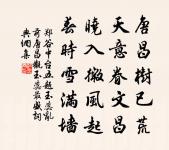 唐昌樹已荒
天意眷文昌
曉入微風起
春時雪滿墻
鄭谷中台五題玉蕊亂
前唐昌觀玉蕊最盛詞
典網集